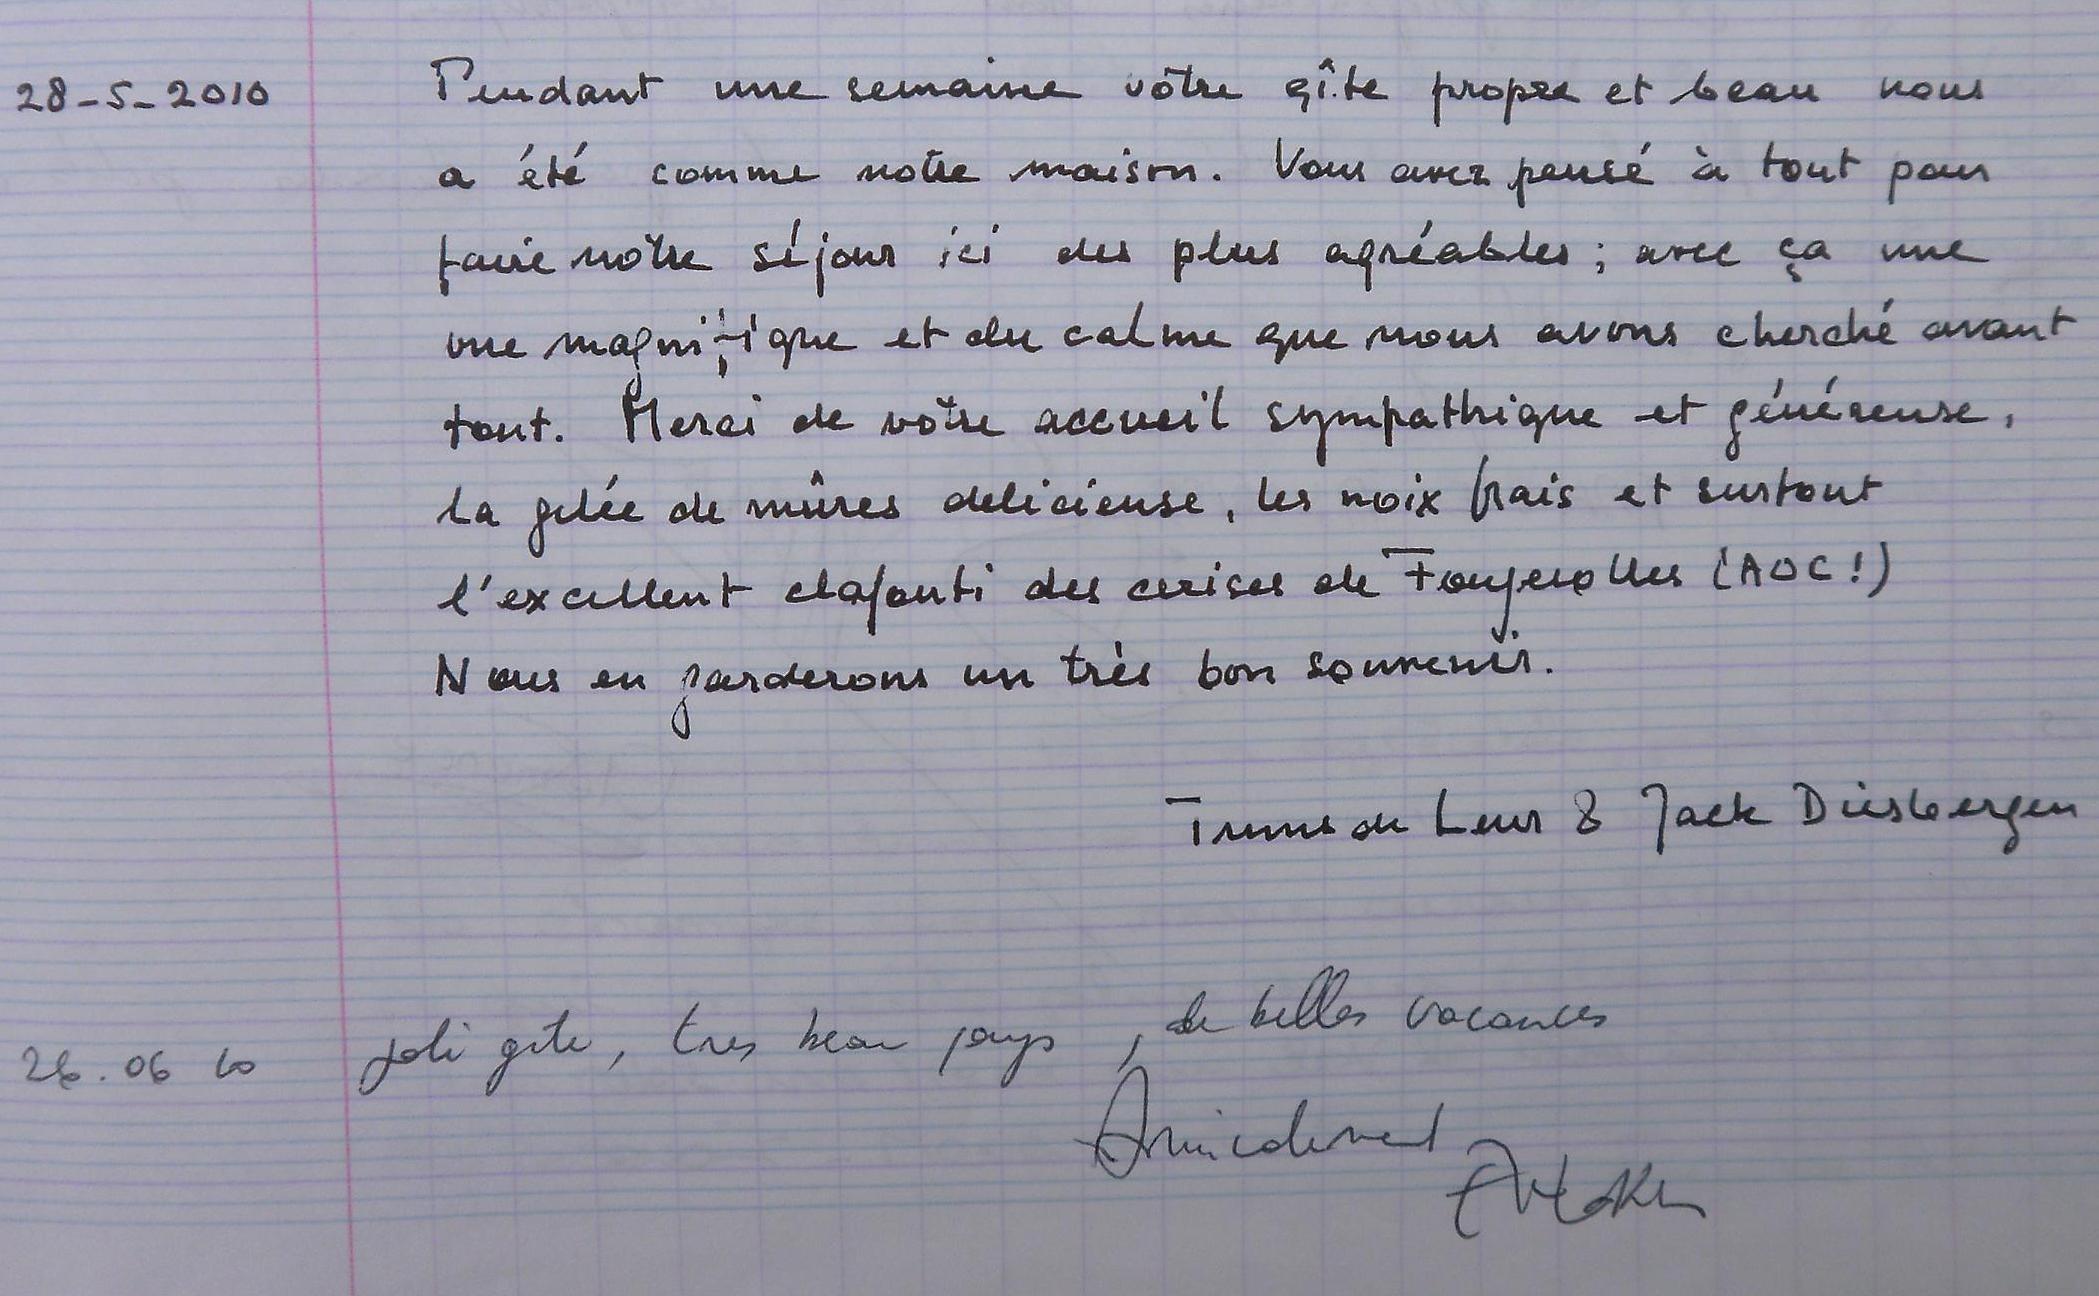 28-5-2010 Pendant une semaine vôtre gîte propre et beau nous
a été comme notre maison. Vous avez pensé à tout pour
faire nôtre séjour ici des plus agréables; avec ça une
vue magnifique et du calme que nous avons cherché avant
tout. Merci de vôtre accueil sympathique et généreuse,
la gelée de mûres delicieuse, les noix frais et surtout
l'excellent clafouti des cerises de Fougerolles (AOC!)
Nous en garderons un très bon souvenir.
Leur & Jack Duisbergen
26.06 10 joli gite, tres beau pays, de belles vacances
Amicalement